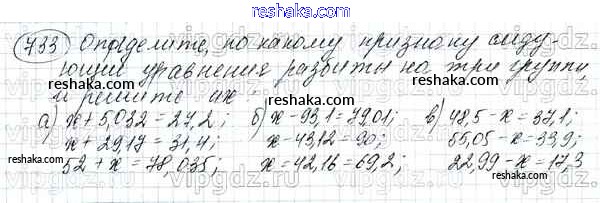 reshaka.com
733 Определите, по какому признаку следу-
ющие уравнения разбиты на три группы,
и решите их:
а) x + 5,032 = 27,2; б) x - 93,1 = 79,01; в) 48,5 - x = 37,1;
x + 29,17 = 31,4; x - 43,12 = 90; 55,05 - x = 33,9;
52 + x = 78,035; x = 42,16 = 69,2; 22,99 - x = 17,3
reshaka.com